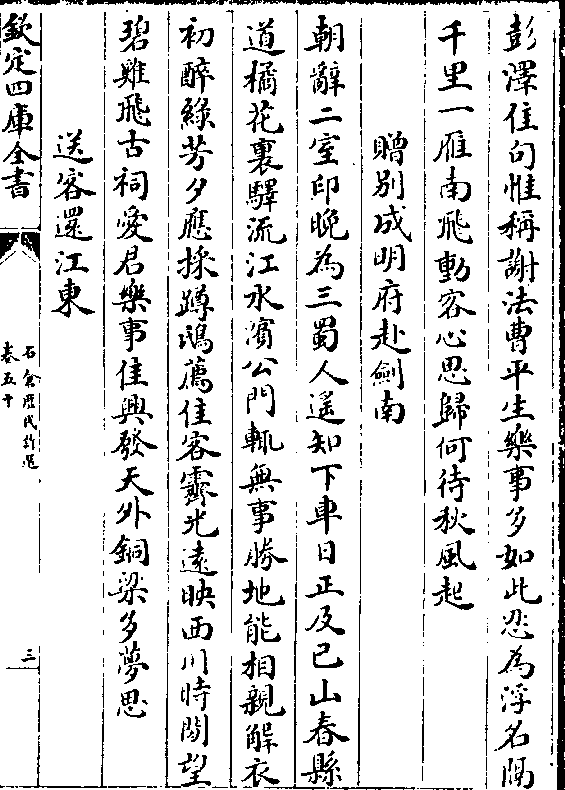 彭澤佳句惟稱謝法曹平生樂事多如此忍為浮名隔
千里一雁南飛動客心思歸何待秋風起
贈别成明府赴劍南
朝辭二室印晚為三蜀人遥知下車日正及巴山春縣
道橘花裏驛流江水濱公門輒無事勝地能相親解衣
初醉緑芳夕應採蹲鴟薦佳客靈光逺映西川時閒望
碧雞飛古祠愛君樂事佳興發天外銅梁多夢思
送客還江東
欽定四庫全書
石倉歴代詩選
卷五十
三